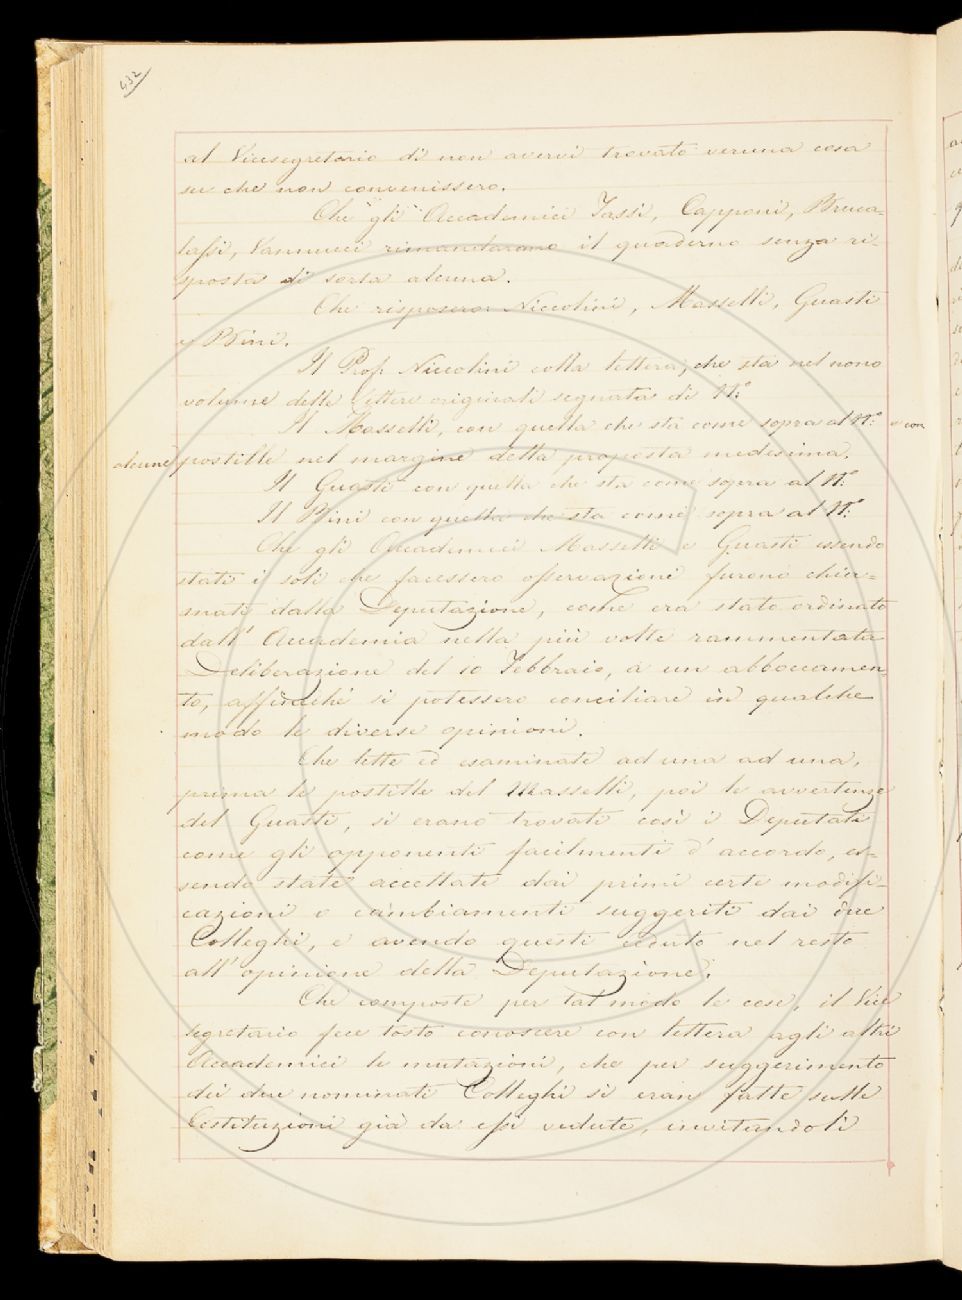 432
al Vicesegretario di non avervi trovato veruna cosa
su che non convenissero.
Che gli Accademici Tassi, Capponi, Bruca-
lassi, Vannucci rimandarono il quaderno senza ri-
sposta di sorta alcuna.
Che risposero Niccolini, Masselli, Guasti
e Bini.
Il Prof. Niccolini colla lettera, che sta nel nono
volume delle Lettere originali segnata di N.°
Il Masselli, con quella che sta come sopra al N.° e con
alcune postille nel margine della proposta medesima.
Il Guasti con quella che sta come sopra al N.°
Il Bini con quella che sta come sopra al N.°
Che gli Accademici Masselli e Guasti essendo
stati i soli che facessero osservazioni furono chia-
mati dalla Deputazione, come era stato ordinato
dall' Accademia nella più volte rammentata
Deliberazione del 10 Febbraio, a un abboccamen-
to, affinchè si potessero conciliare in qualche
modo le diverse opinioni.
Che lette ed esaminate ad una ad una,
prima le postille del Masselli, poi le avvertenze
del Guasti, si erano trovati così i Deputati
come gli opponenti facilmente d' accordo, es-
sendo state accettate dai primi certe modifi-
cazioni e cambiamenti suggeriti dai due
Colleghi, e avendo questi ceduto nel resto
all' opinione della Deputazione.
Che composte per tal modo le cose, il Vice
segretario fece tosto conoscere con lettera agli altri
Accademici le mutazioni, che per suggerimento
dei due nominati Colleghi si eran fatte sulle
Costituzioni già da essi vedute, invitandoli